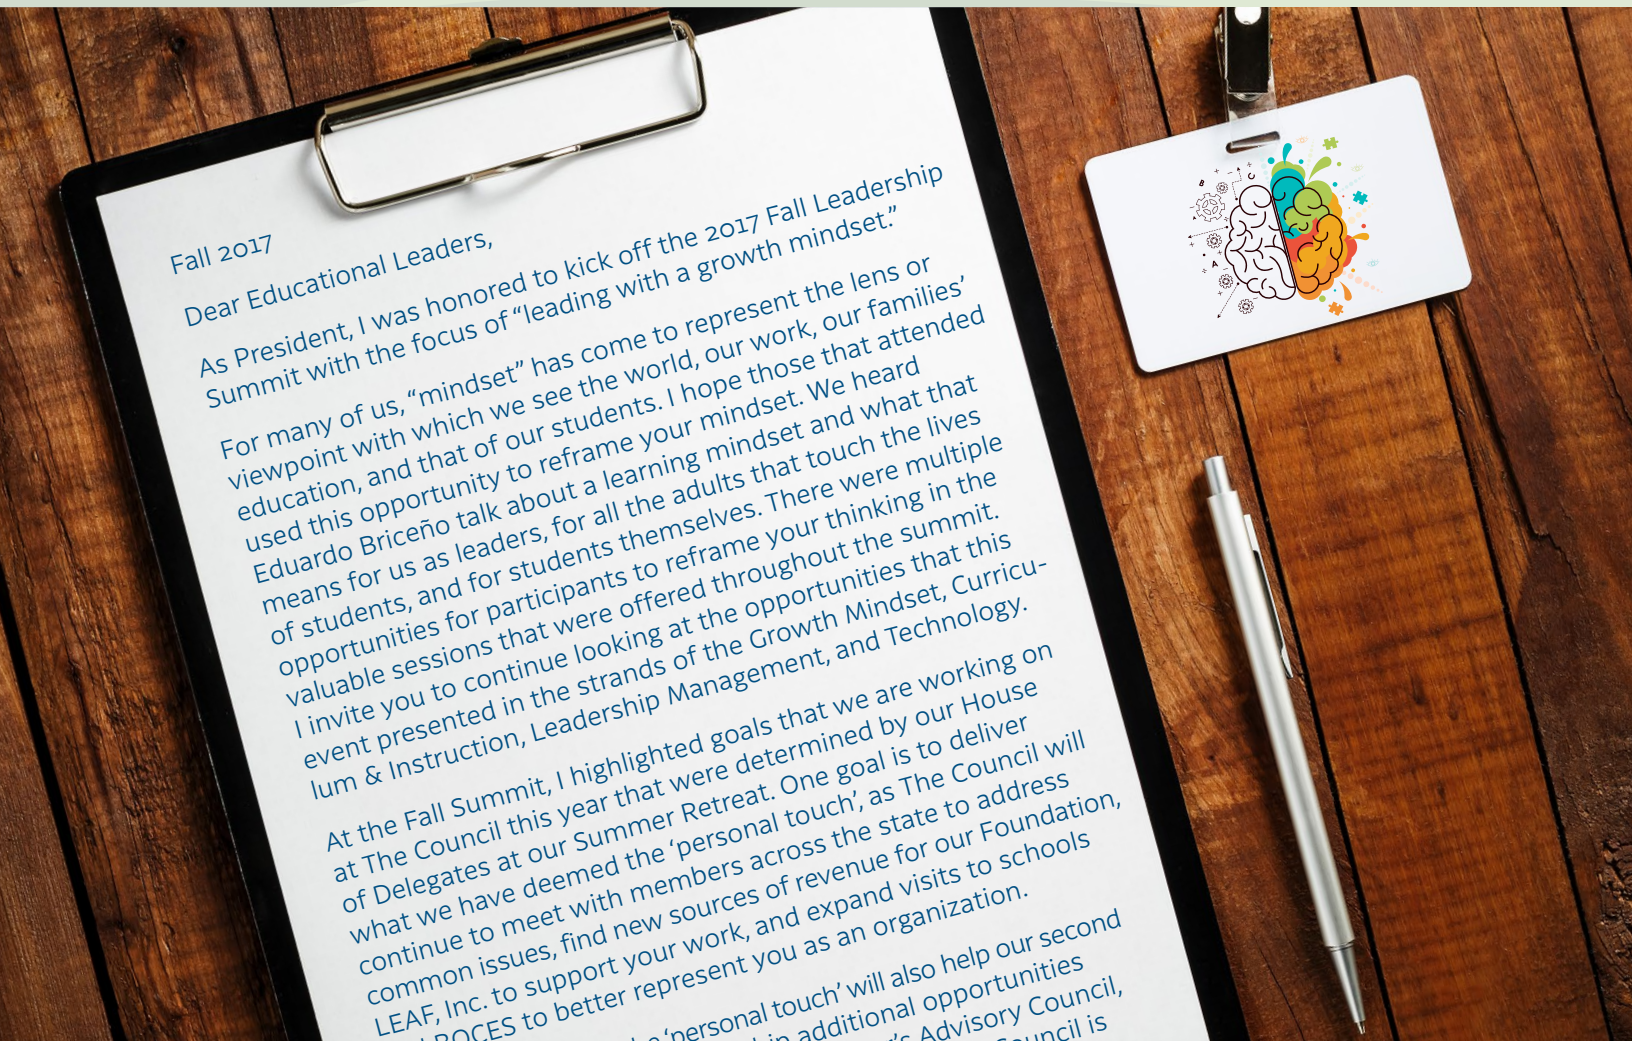 Fall 2017
Dear Educational Leaders,
As President, I was honored to kick off the 2017 Fall Leadership
Summit with the focus of “leading with a growth mindset.”
For many of us, “mindset” has come to represent the lens or
viewpoint with which we see the world, our work, our families’,
education, and that of our students. I hope those that attended
used this opportunity to reframe your mindset. We heard
Eduardo Briceño talk about a learning mindset and what that
means for us as leaders, for all the adults that touch the lives
of students, and for students themselves. There were multiple
opportunities for participants to reframe your thinking in the
valuable sessions that were offered throughout the summit.
I invite you to continue looking at the opportunities that this
event presented in the strands of the Growth Mindset, Curricu-
lum & Instruction, Leadership Management, and Technology.
At the Fall Summit, I highlighted goals that we are working on
at The Council this year that were determined by our House
of Delegates at our Summer Retreat. One goal is to deliver
what we have deemed the ‘personal touch’, as The Council will
continue to meet with members across the state to address
common issues, find new sources of revenue for our Foundation,
LEAF, Inc. to support your work, and expand visits to schools
BOCES to better represent you as an organization.
‘personal touch’ will also help our second
in additional opportunities
Advisory Council,
Council is
B
C
A